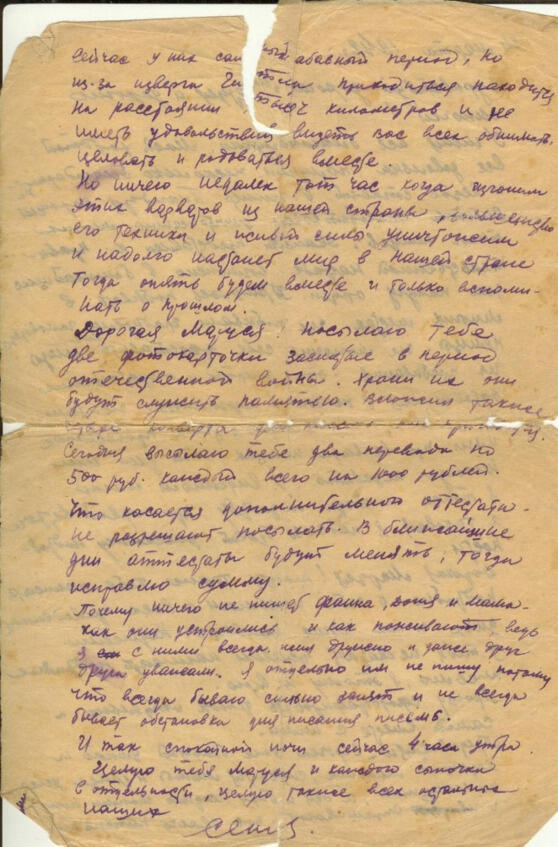 Сейчас у нас самый абасный период, но
из-за изверга Гитлера приходиться находится
на расстоянии тысяч километров и не
иметь удовольствия видеть вас всех обнимать,
целовать и радоваться вместе.
Но ничего недалек тот час когда изгоним
этих варваров из нашей страны,
его техники и живой силы уничтожим
и надолго настанет мир в нашей стране
Тогда опять будем вместе и только вспоми-
нать о прошлом.
Дорогая Маруся посылаю тебе
две фотокарточки заснятые в период
отечественной войны. Храни их они
будут служить памятью. Вложил также
два конверта для
Сегодня высылаю тебе два перевода по
500 руб. каждый всего на 1000 рублей.
Что касается дополнительного аттестата-
не разрешают посылать. В ближайшие
дни аттестаты будут менять, тогда
исправлю сумму.
Почему ничего не пишет Фаина, Доня и мама-
как они устроились и как поживают, ведь
я с ними всегда жил дружно и даже друг
друга уважали. Я отдельно им не пишу потому
что всегда бываю сильно занят и не всегда
бывает обстановка для писания письма.
И так спокойной ночи сейчас 4 часа утра
Целую тебя Маруся и каждого сыночка
в отдельности, целую также всех остальных
наших
Сеня.